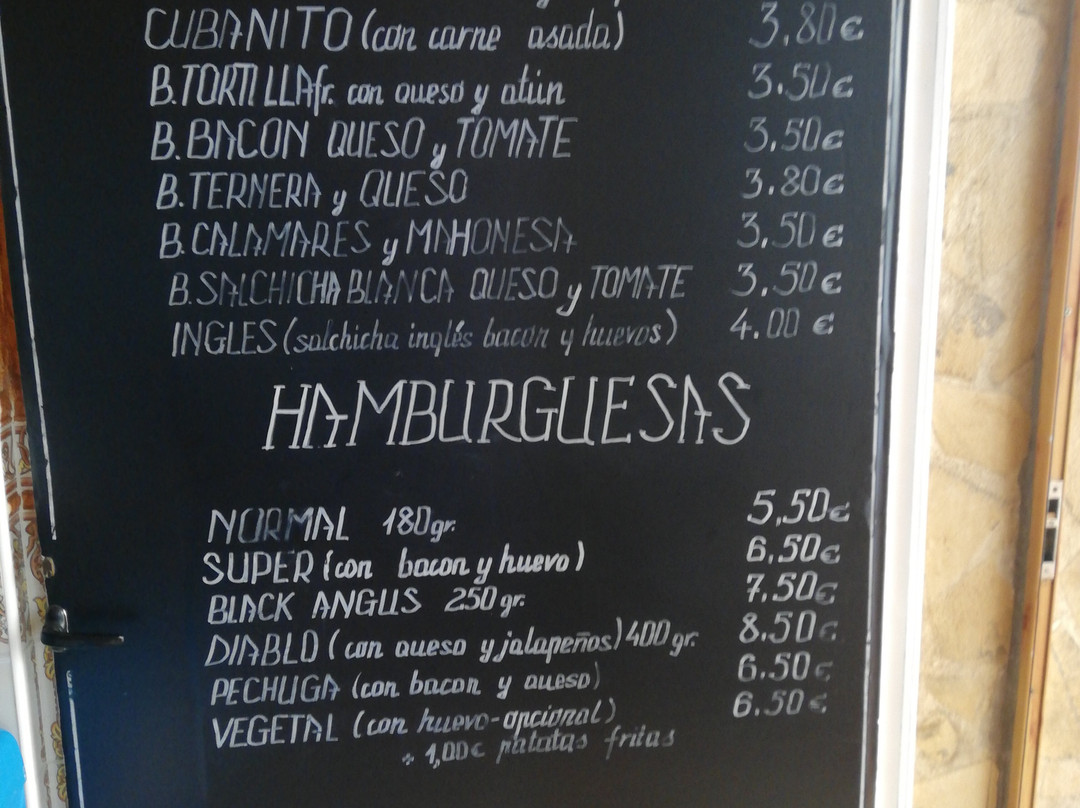 CUBANITO (con carne asada) 3,80€
B. TORTILLA fr. con queso y atún 3.50€
B. BACON QUESO y TOMATE 3,50€
B. TERNERA y QUESO 3.80€
B. CALAMARES y MAHONESA 3,50€
B. SALCHICHA BLANCA QUESO y TOMATE 3.50€
INGLES (salchicha inglés bacon y huevos) 4.00€
HAMBURGUESAS
NORMAL 180gr. 5,50€
SUPER (con bacon y huevo) 6,50€
BLACK ANGUS 250gr. 7.50€
DIABLO (con queso y jalapeños) 400gr. 8.50€
PECHUGA (con bacon y queso) 6.50€
VEGETAL (con huevo-opcional) 6.50€
+ 1,00€ patatas fritas